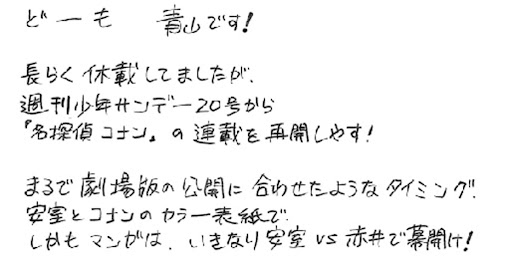 どーも 青山です!
長らく休載してましたが、
週刊少年サンデー20号から
『名探偵コナン』の連載を再開しやす!
まるで劇場版の公開に合わせたようなタイミング。
安室とコナンのカラー表紙で、
しかもマンガは、いきなり安室VS赤井で幕開け!